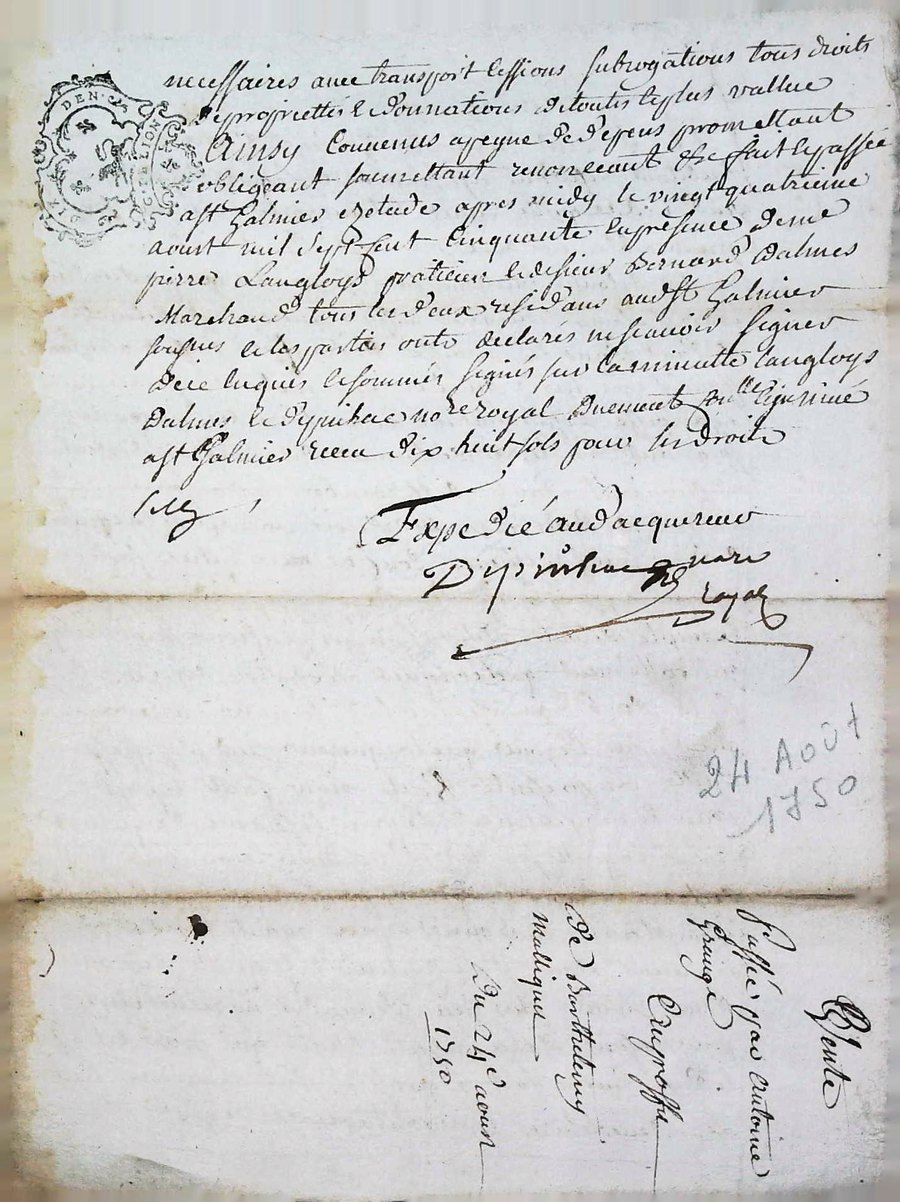 DIX DEN. G. LION
necessaires avec transport cessions subrogations tous droits
de proprietté & dounations de toutte le plus vallue
Ainsy Convenus a peyne de depens promettant
obligeant soumettant renonceant &c fait & passé
a St Galmier estude apres midy le vingt quatrieme
aoust mil sept cent cinquante en presence de me
pierre Langloys praticien & de sieur Bernard Dalmes
Marchand tous les deux residans aud St Galmier
sousnes & les parties onts declarés ne scavoir signer
de ce enquis & sommés signés sur la minutte Langloys
Dalmes & notre royal Duement
a St Galmier receu dix huit sols pour les droits
Expedié aud acquereur
nore
royal
24 AOÛT
1750
Vente
Passée par antoine
Grange
de Barthelemy
Malliquet
Du 24e aoust
1750